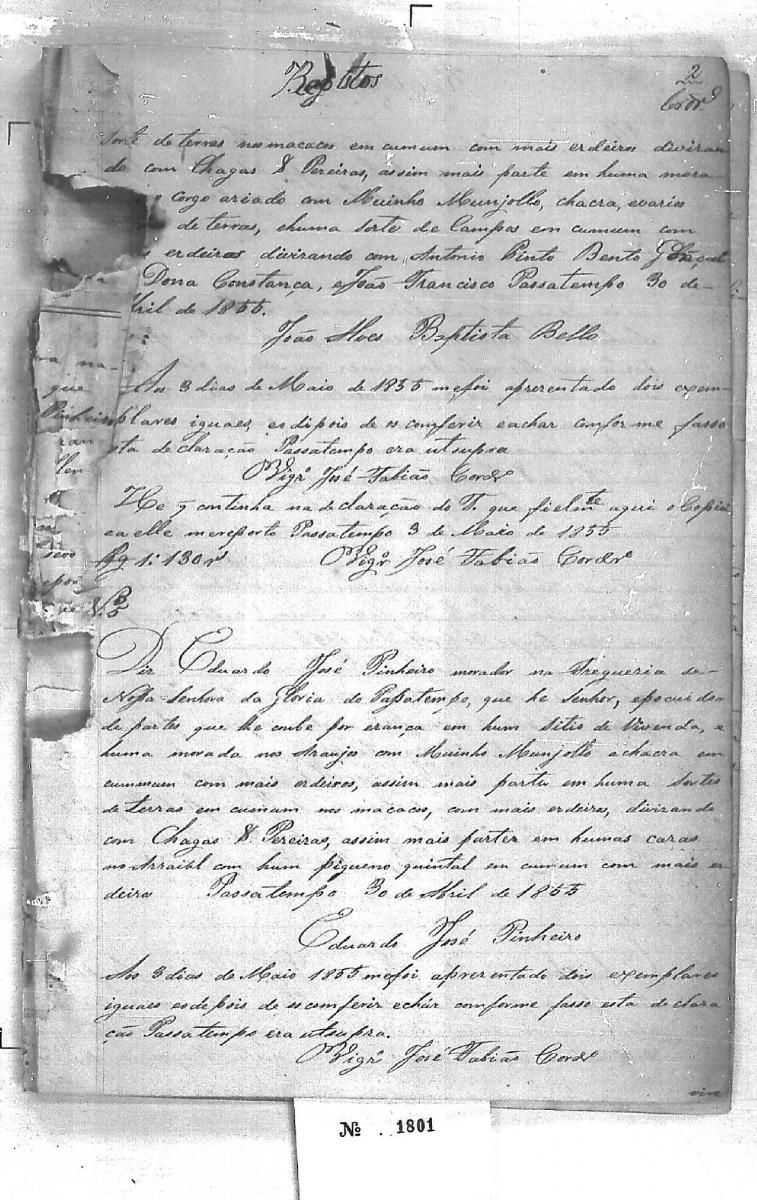 Registos
2
Cordr.º
sorte de terras nos macacos em cumum com mais erdeiros diviran
do com Chagas & Pereiras, assim mais parte em huma mora
corgo ariado com Muinho Munjollo, chacra, evarios
de terras, ehuma sorte de Campos em cumum com
erdeiros divizando com Antonio Pinto Bento
Dona Constança, eJoão Francisco Passatempo 30 de
bril de 1855.
João Alves Baptista Bello
Aos 3 dias de Maio de 1855 mefoi aprezentado dois exem-
plares iguaes, eodipois de os comferir eachar comforme fasso
sta declaração Passatempo era utsupra
Vigrº José Fabião Cordrº
He q continha na declaração do T. que fielmte aqui o Copiei
ea elle mereporto Passatempo 3 de Maio de 1855
Pg 1: 130 r
Vigrº José Fabião Cordrº
N.
Diz Eduardo José Pinheiro morador na Fregueria de
Nossa Senhora da Gloria do Passatempo, que he Senhor, epocuidor
de partes que lhe coube por erança em hum sitio de Vivenda, e
huma morada nos Araujos com Muinho Munjollo echacra em
cummum com mais erdeiros, assim mais parte em huma Sortes
de terras em cumum nos macacos, com mais erdeiros, divizando
com Chagas & Pereiras, assim mais partes em humas cazas
no Arraibl com hum piqueno quintal em cumum com mais er-
deiro Passatempo 30 de Abril de 1855
Eduardo José Pinheiro
Aos 3 dias de Maio 1855 mefoi aprezentado dois exemplares
iguaes eodepois de os comferir echár comforme fasso esta declara
ção Passatempo era utsupra.
Vigrº José Fabião Cordrº
Nº 1801